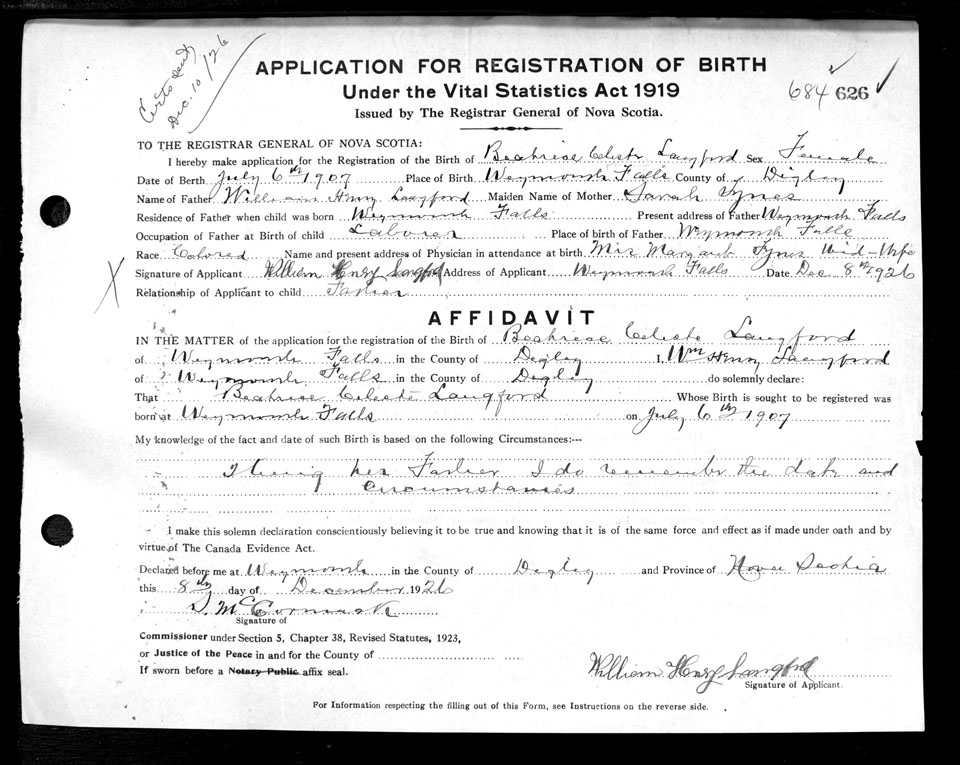 Cert. sent
Dec. 10/26
APPLICATION FOR REGISTRATION OF BIRTH
Under the Vital Statistics Act 1919
684 626
Issued by The Registrar General of Nova Scotia.
TO THE REGISTRAR GENERAL OF NOVA SCOTIA:
I hereby make application for the Registration of the Birth of Beatrice Celeste Langford Sex Female
Date of Berth July 6th 1907 Place of Birth Weymouth Falls County of Digby
Name of Father William Henry Langford Maiden Name of Mother Sarah Tynes
Residence of Father when child was born Weymouth Falls Present address of Father Weymouth Falls
Occupation of Father at Birth of child Laborer Place of birth of Father Weymouth Falls
Race Colored Name and present address of Physician in attendance at birth Mis Margaret Tynes Mid-Wife
Signature of Applicant William Henry Langford Address of Applicant Weymouth Falls Date Dec 8th 1926
Relationship of Applicant to child Father
X
AFFIDAVIT
IN THE MATTER of the application for the registration of the Birth of Beatrice Celeste Langford
of Weymouth Falls in the County of Digby I, Wm Henry Langford
of Weymouth Falls in the County of Digby do solemnly declare:
That Beatrice Celeste Langford Whose Birth is sought to be registered was
born at Weymouth Falls on July 6th 1907
My knowledge of the fact and date of such Birth is based on the following Circumstances:---
I being her Father I do remember the date and
Circumstances
I make this solemn declaration conscientiously believing it to be true and knowing that it is of the same force and effect as if made under oath and by
virtue of The Canada Evidence Act.
Declared before me at Weymouth in the County of Digby and Province of Nova Scotia
this 8th day of December 1926
D. McCormick
Signature of
Commissioner under Section 5, Chapter 38, Revised Statutes, 1923,
or Justice of the Peace in and for the County of
If sworn before a Notary Public affix seal.
William Henry Langford
Signature of Applicant.
For Information respecting the filling out of this Form, see Instructions on the reverse side.